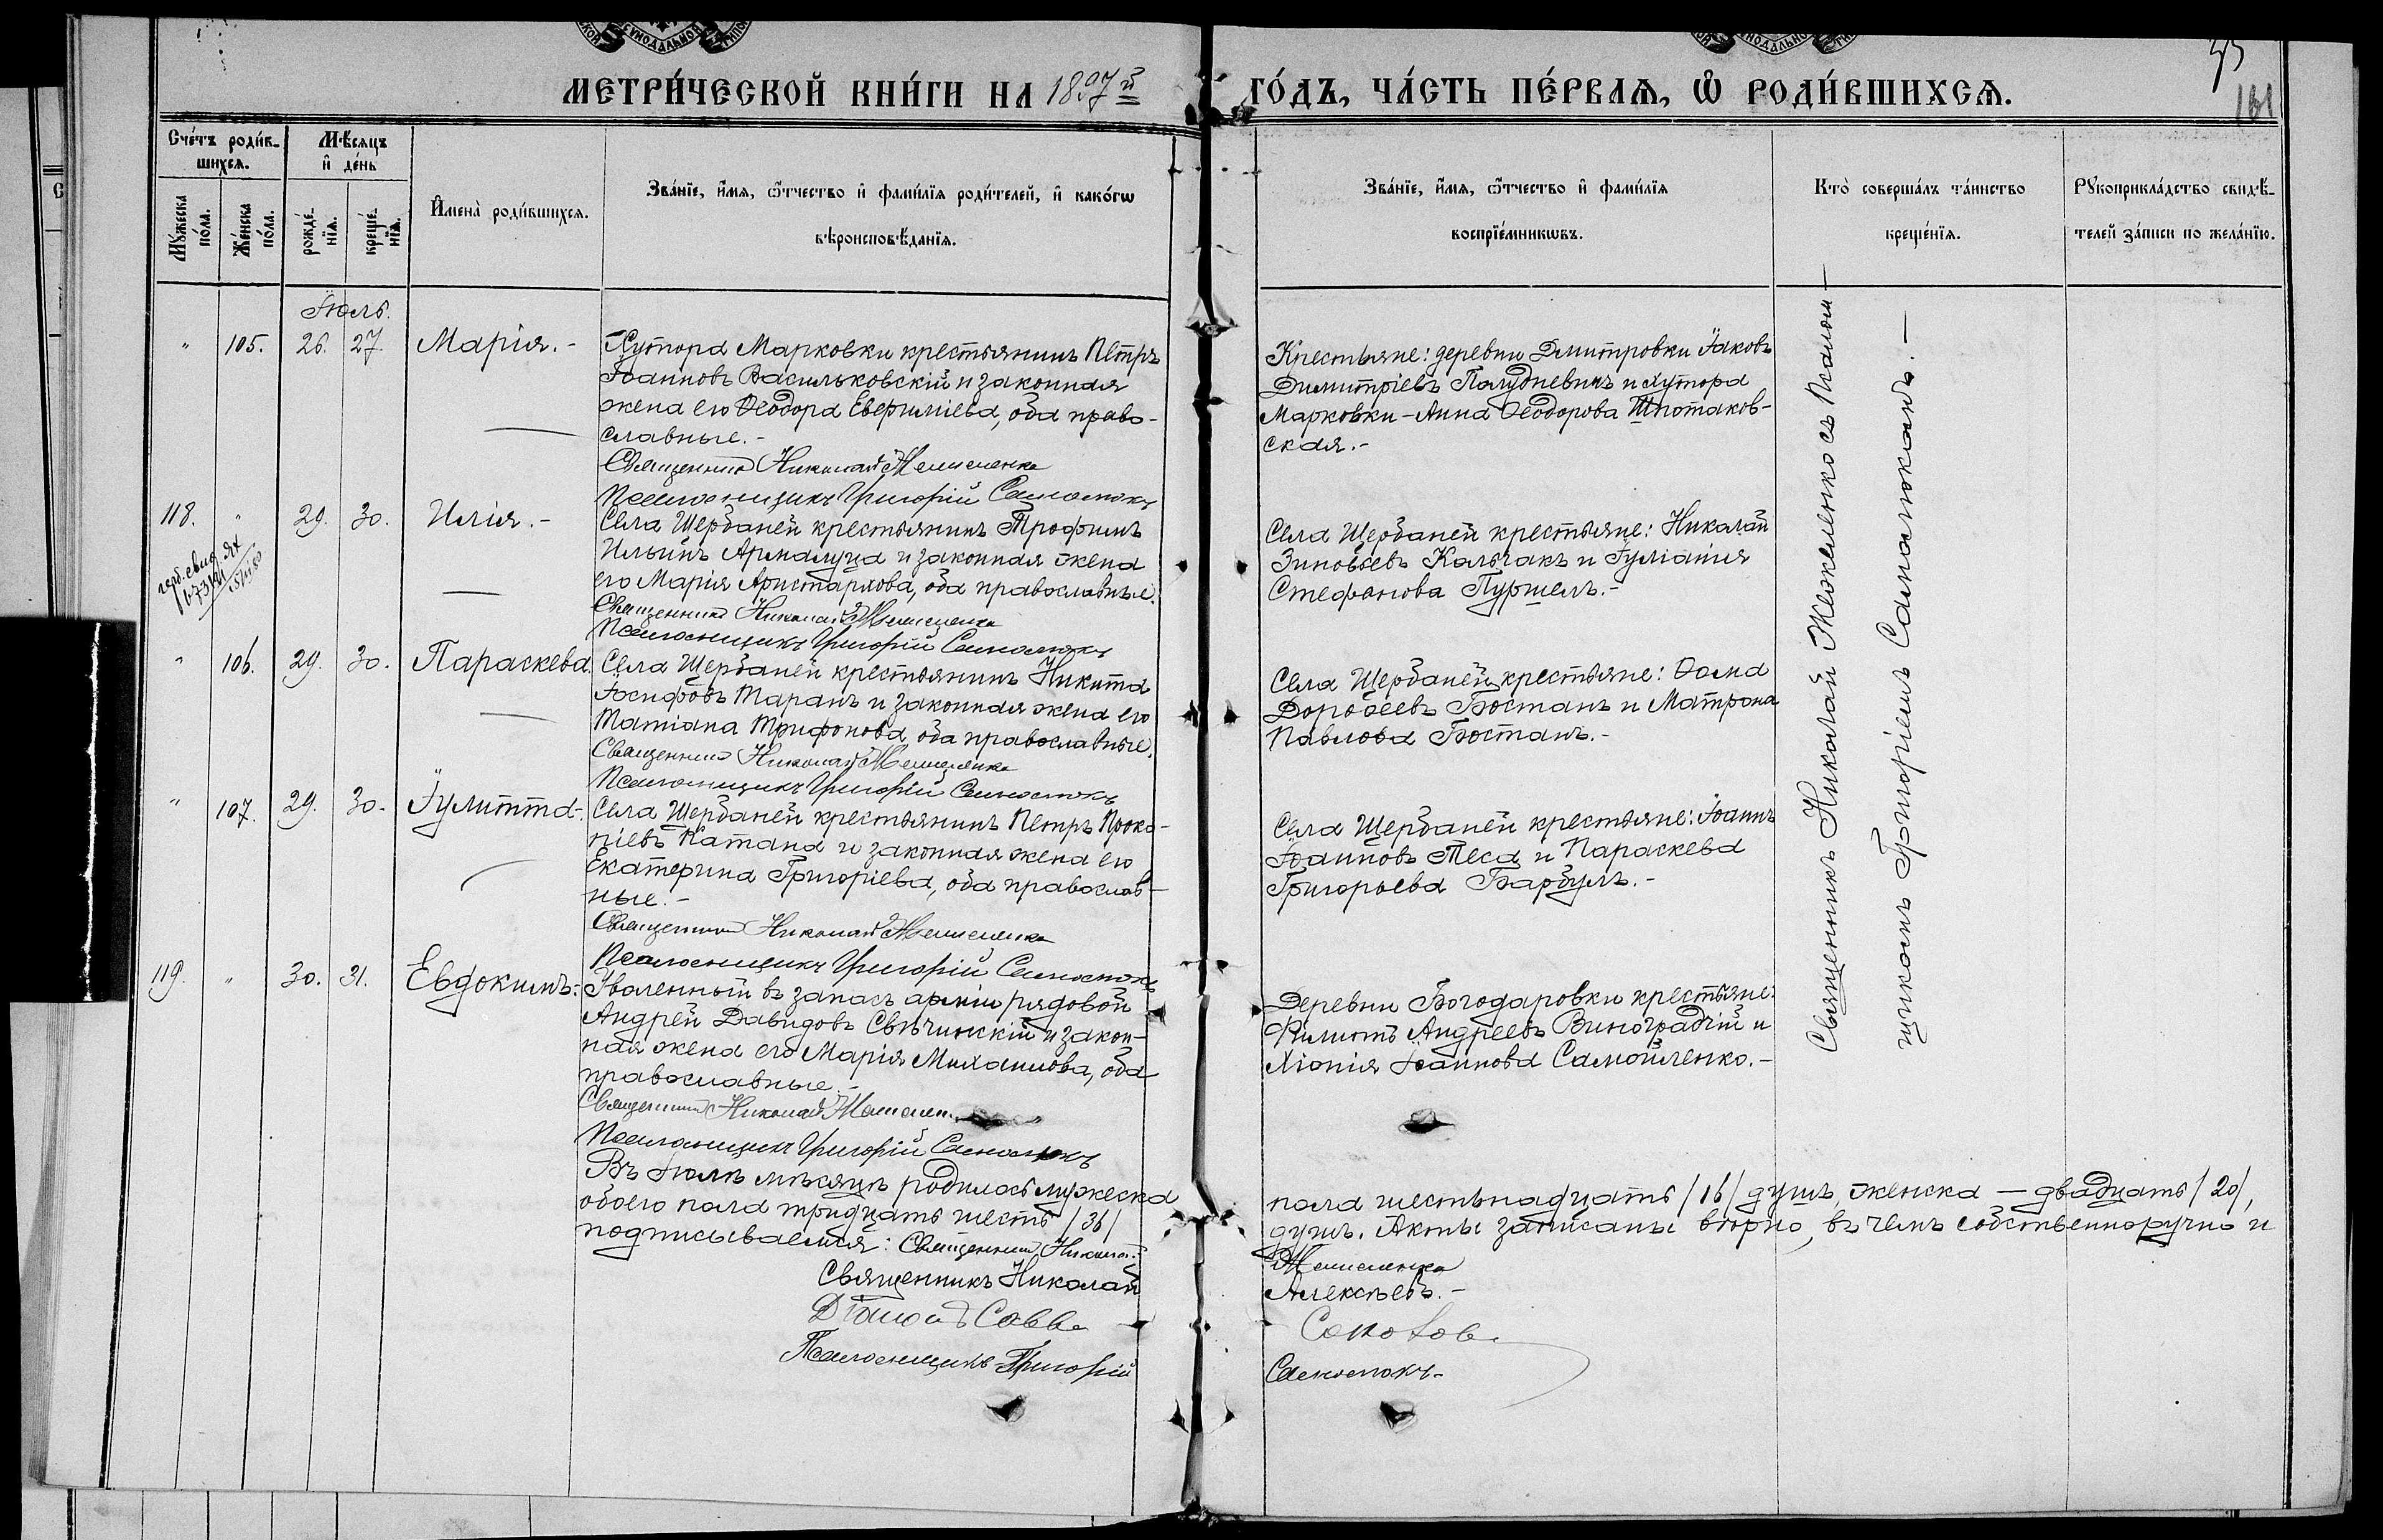 МЕТРИ́ЧЕСКОЙ КНИ́ГИ НА 1897й ГО́ДЪ, ЧА́СТЬ ПЕ́РВАѦ, Ѡ҆ РОДИ́ВШИХСѦ.
161
Сче́тъ роди́в-
шихсѧ.
Мѣ́сяцъ
и҆ де́нь
Мꙋ́жеска
по́ла.
Же́нска
по́ла.
рожде́-
нїѧ.
креще́-
нїѧ.
И҆мена̀ роди́вшихсѧ.
Зва́нїе, и҆́мѧ, ѻ҆́тчество и҆ фами́лїѧ роди́телей, и҆ како́гѡ
вѣроисповѣ́данїѧ.
Зва́нїе, и҆́мѧ, ѻ҆́тчество и҆ фами́лїѧ
воспрїе́мникѡвъ.
Кто̀ соверша́лъ та́инство
креще́нїѧ.
Рꙋкоприкла́дство свидѣ́-
телей за́писи по жела́нїю.
Іюль.
" 105. 26. 27. Марія.-
Хутора Марковки крестьянинъ Петръ
Іоанновъ Васильковскій и законная
жена его Ѳеодора Евфиміева, оба право-
славные.-
Священникъ Николай
Псаломщикъ Григорій Самолюкъ
Крестьяне: деревни Дмитровки Іаковъ
Димитріевъ Полудневичъ и хутора
Марковки - Анна Ѳеодорова Шпотаков-
ская.-
118. " 29. 30. Илія.-
Села Щербаней крестьянинъ Трофимъ
Ильинъ Армалуца и законная жена
его Марія Аристархова, оба православные.
Священникъ Николай
Псаломщикъ Григорій Самолюкъ
Села Щербаней крестьяне: Николай
Зиновьевъ Кальчакъ и Іуліанія
Стефанова Пуршелъ.-
" 106. 29. 30. Параскева.
Села Щербаней крестьянинъ Никита
Іосифовъ Таранъ и законная жена его
Татіана Трифонова, оба православные.
Священникъ Николай
Псаломщикъ Григорій Самолюкъ
Села Щербаней крестьяне: Ѳома
Дороѳеевъ Бостанъ и Матрона
Павлова Бостанъ.-
" 107. 29. 30. Іулитта.-
Села Щербаней крестьянинъ Петръ Проко-
піевъ Катана и законная жена его
Екатерина Григоріева, оба православ-
ные.-
Священникъ Николай
Псаломщикъ Григорій Самолюкъ
Села Щербаней крестьяне: Іоаннъ
Іоанновъ Теса и Параскева
Григорьева Барбулъ.-
119. " 30. 31. Евдокимъ.-
Уволенный въ запасъ арміи рядовой
Андрей Давидовъ Свѣчинскій и закон-
ная жена его Марія Михаилова, оба
православные.-
Священникъ Николай
Псаломщикъ Григорій Самолюкъ
Деревни Богодаровки крестьяне:
Филиппъ Андреевъ Виноградчій и
Хіонія Іоаннова Самойленко.-
Священникъ Николай съ Псалом-
щикомъ Григоріемъ Самолюкомъ.-
Въ Іюлѣ мѣсяцѣ родилось мужеска пола шестьнадцать /16/ душъ, женска - двадцать /20/,
обоего пола тридцать шесть /36/ душъ. Акты записаны вѣрно, въ чемъ собственноручно и
подписываемся: Священникъ Николай
Священникъ Николай Алексѣевъ.-
Діаконъ Савва Соколов
Псаломщикъ Григорій Самолюкъ.